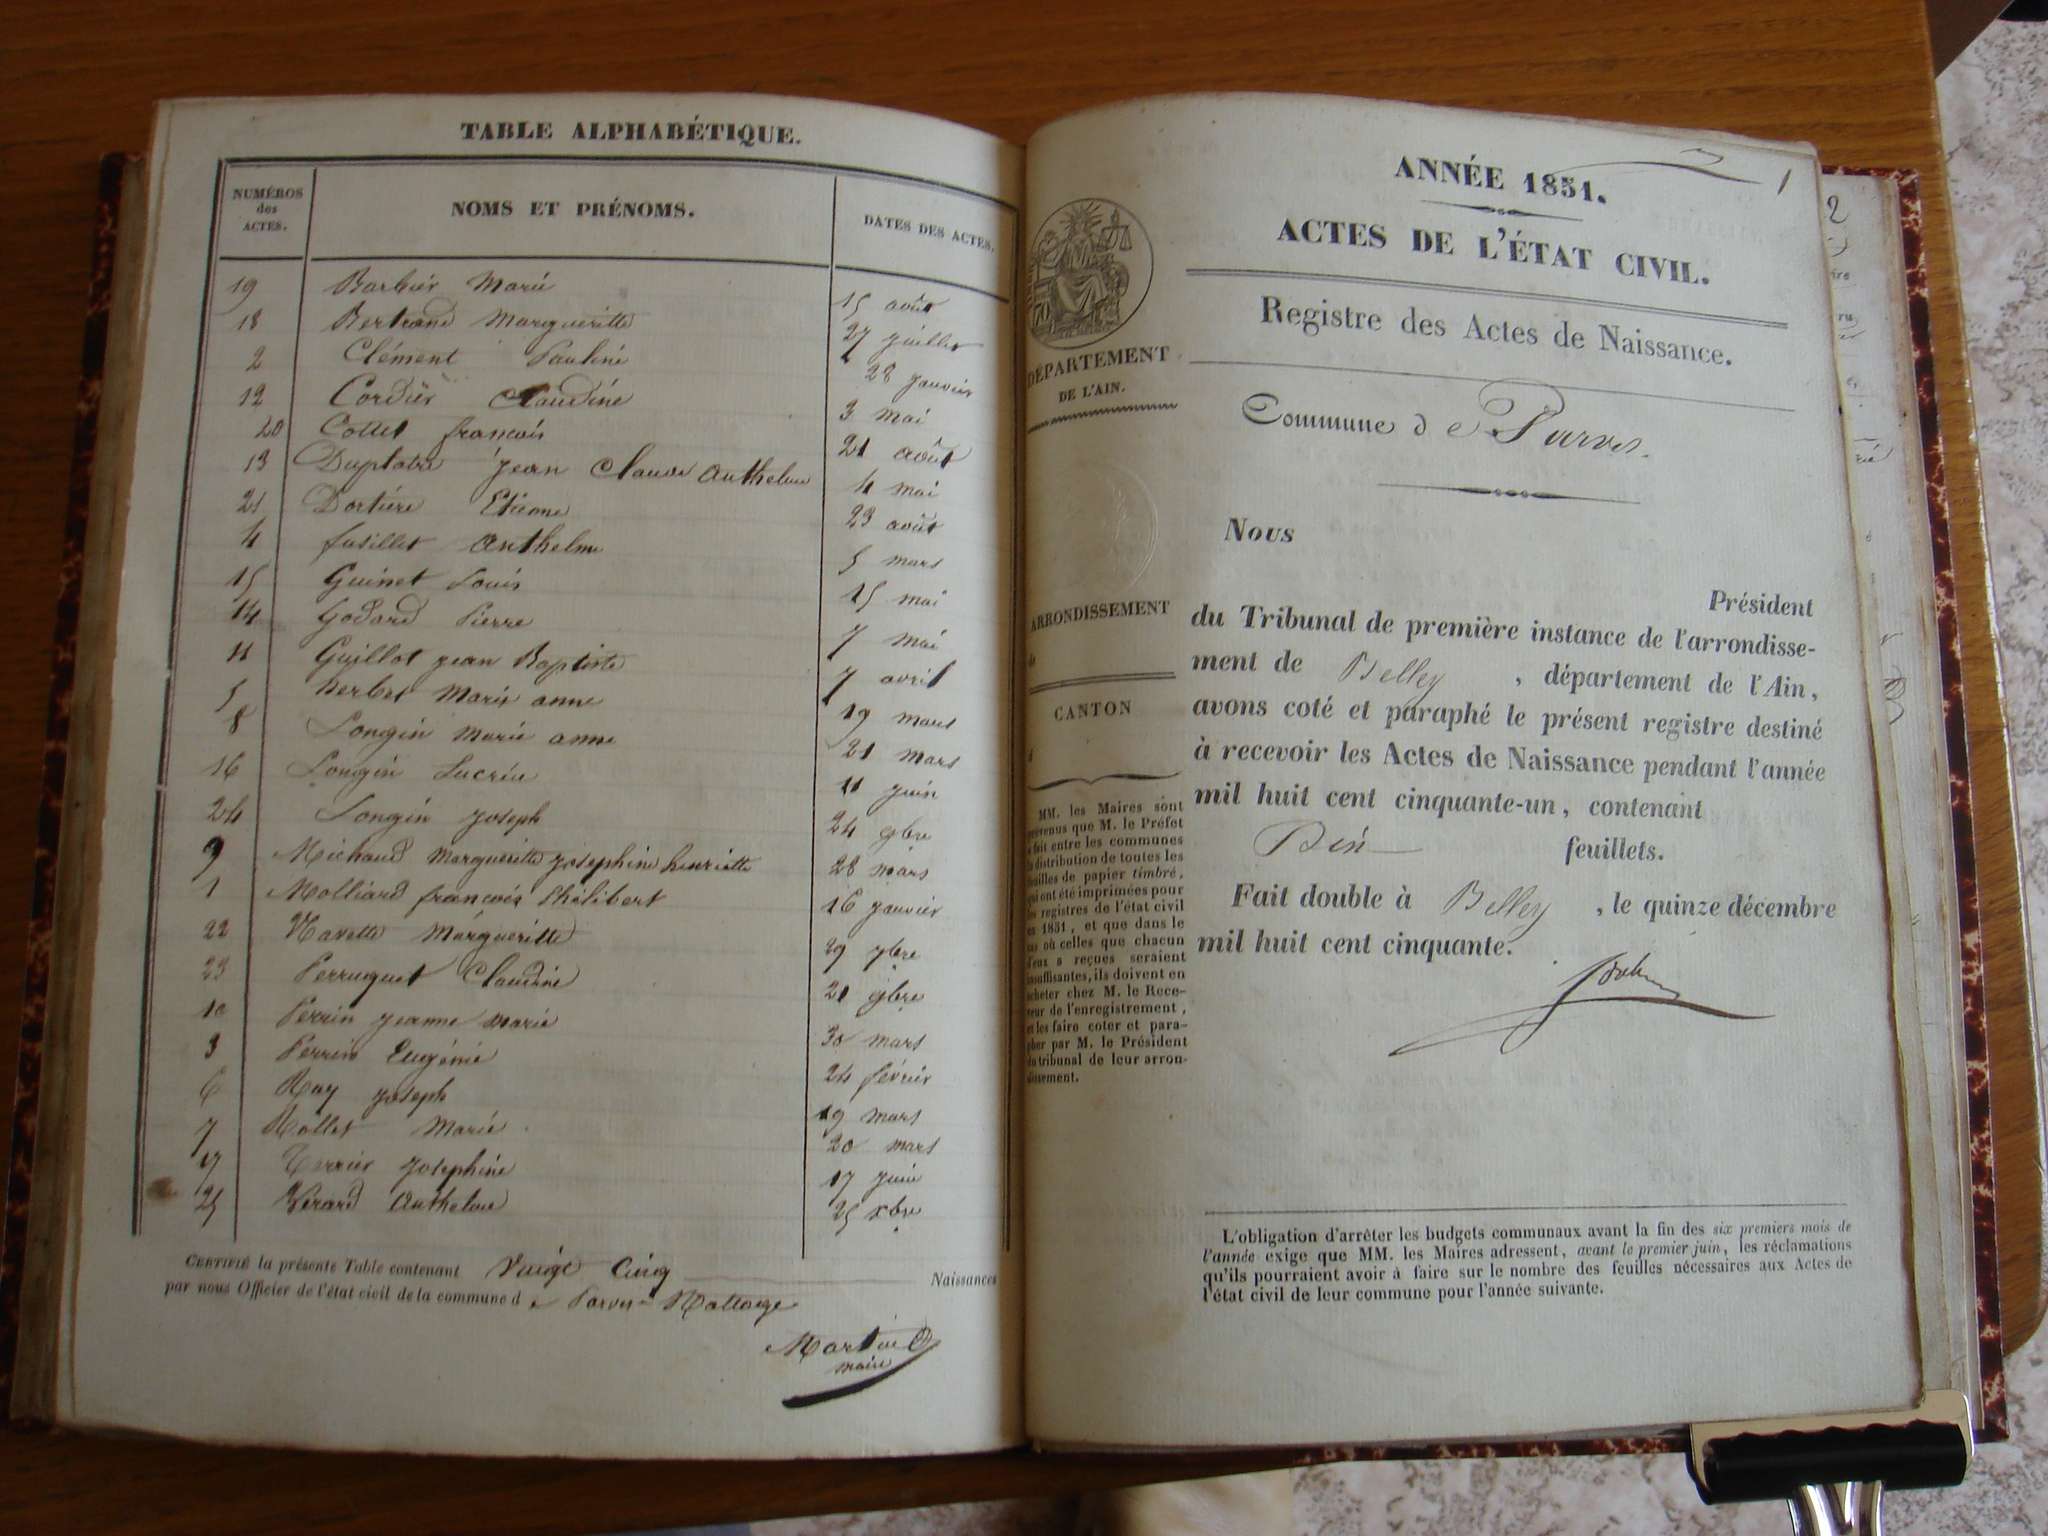 TABLE ALPHABÉTIQUE.
NUMÉROS des ACTES. NOMS ET PRÉNOMS. DATES DES ACTES.
19 Barbier Marie 15 août
18 Bertrand Margueritte 27 juillet
2 Clément Pauline 28 janvier
12 Cordier Claudine 3 mai
20 Collet françois 21 août
13 Duplatre Jean Claude Anthelme 4 mai
21 Dortière Etienne 23 août
4 fusillet Anthelme 5 mars
15 Guinet Louis 15 mai
14 Godard Pierre 7 mai
11 Guillot jean Baptiste 7 avril
5 herbet Marie anne 19 mars
8 Longin Marie anne 21 mars
16 Longin 11 juin
24 Longin joseph 24 9bre
9 Michaud Margueritte josephine henriette 28 mars
1 Molliard françois Philibert 16 janvier
22 Navette Margueritte 29 7bre
23 Perruquet Claudine 21 9bre
10 Perrin jeanne Marie 30 mars
3 Perrin Eugénie 24 février
6 Ray joseph 19 mars
7 Rollet Marie 20 mars
17 Terrier josephine 17 juin
25 Verard Anthelme 25 xbre
CERTIFIÉ la présente Table contenant Vingt Cinq Naissances
par nous Officier de l'état civil de la commune d e Parves Nattage
Martin
maire
1
ANNÉE 1851.
ACTES DE L'ÉTAT CIVIL.
Registre des Actes de Naissance.
DÉPARTEMENT
DE L'AIN.
Commune d e Parves.
Nous
Président
du Tribunal de première instance de l'arrondisse-
ment de Belley, département de l'Ain,
avons coté et paraphé le présent registre destiné
à recevoir les Actes de Naissance pendant l'année
mil huit cent cinquante-un, contenant
Dix feuillets.
Fait double à Belley, le quinze décembre
mil huit cent cinquante.
ARRONDISSEMENT
CANTON
MM. les Maires sont
prévenus que M. le Préfet
a fait entre les communes
la distribution de toutes les
feuilles de papier timbré,
qui ont été imprimées pour
les registres de l'état civil
en 1851, et que dans le
cas où celles que chacun
d'eux a reçues seraient
insuffisantes, ils doivent en
acheter chez M. le Rece-
veur de l'enregistrement,
et les faire coter et para-
pher par M. le Président
du tribunal de leur arron-
dissement.
L'obligation d'arrêter les budgets communaux avant la fin des six premiers mois de
l'année exige que MM. les Maires adressent, avant le premier juin, les réclamations
qu'ils pourraient avoir à faire sur le nombre des feuilles nécessaires aux Actes de
l'état civil de leur commune pour l'année suivante.
2